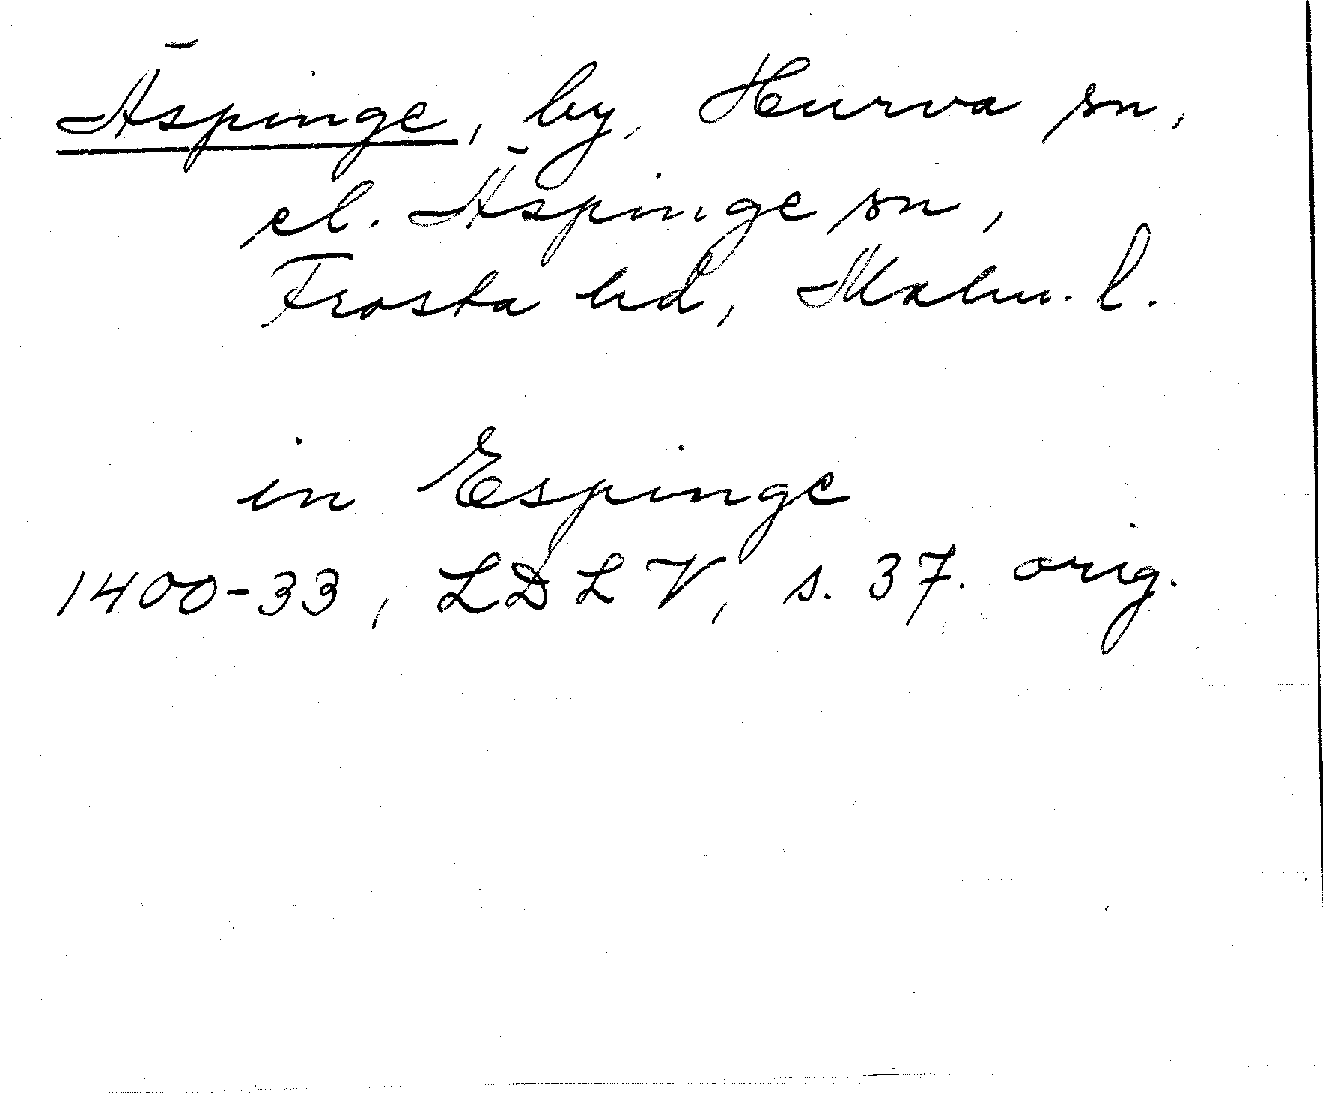 Äspinge, by, Hurva sn,
el. Äspinge sn,
Frosta hd, Malm. l.
in Espinge
1400-33, LDLV, s. 37. orig.